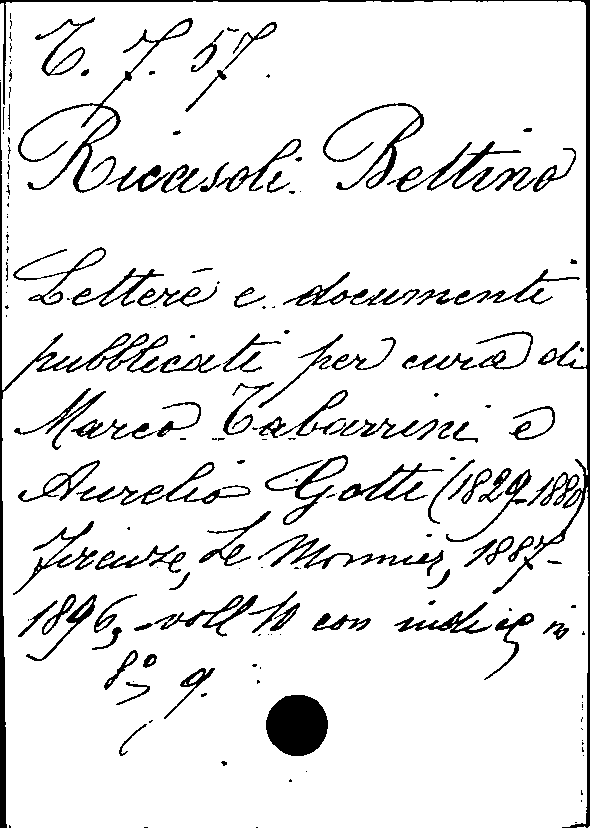 T. 7. 57.
Ricasoli Bettino
Lettere e documenti
pubblicati per cura di
Marco Tabarrini e
Aurelio Gotti (1829-1880)
Firenze, Le Monnier, 1887-
1896, voll 10 con indice, in
8°, q.